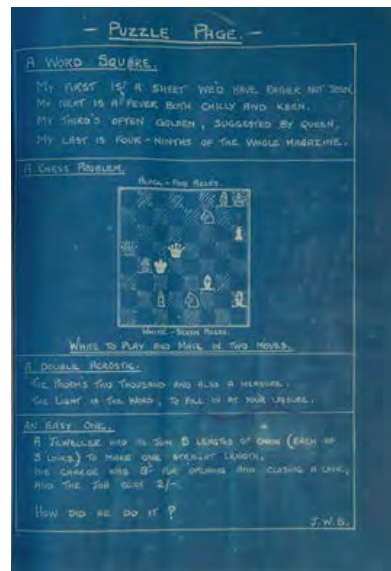 - PUZZLE PAGE. -
A WORD SQUARE.
MY FIRST IS A SHEET WE'D HAVE EAGER NOT SEEN,
MY NEXT IS A FEVER BOTH CHILLY AND KEEN.
MY THIRD'S OFTEN GOLDEN, SUGGESTED BY QUEEN,
MY LAST IS FOUR-NINTHS OF THE WHOLE MAGAZINE.
A CHESS PROBLEM.
BLACK - FIVE PIECES.
WHITE - SEVEN PIECES.
WHITE TO PLAY AND MATE IN TWO MOVES.
A DOUBLE ACROSTIC.
TWO THOUSAND AND ALSO A MEASURE.
THE LIGHT IS THE WORD, TO FILL IN AT YOUR LEISURE.
AN EASY ONE.
A JEWELLER HAD TO JOIN 5 LENGTHS OF CHAIN (EACH OF
3 LINKS) TO MAKE ONE STRAIGHT LENGTH.
HIS CHARGE WAS FOR OPENING AND CLOSING A LINK,
AND THE JOB COST 2/-
HOW DID HE DO IT?
J.W.S.